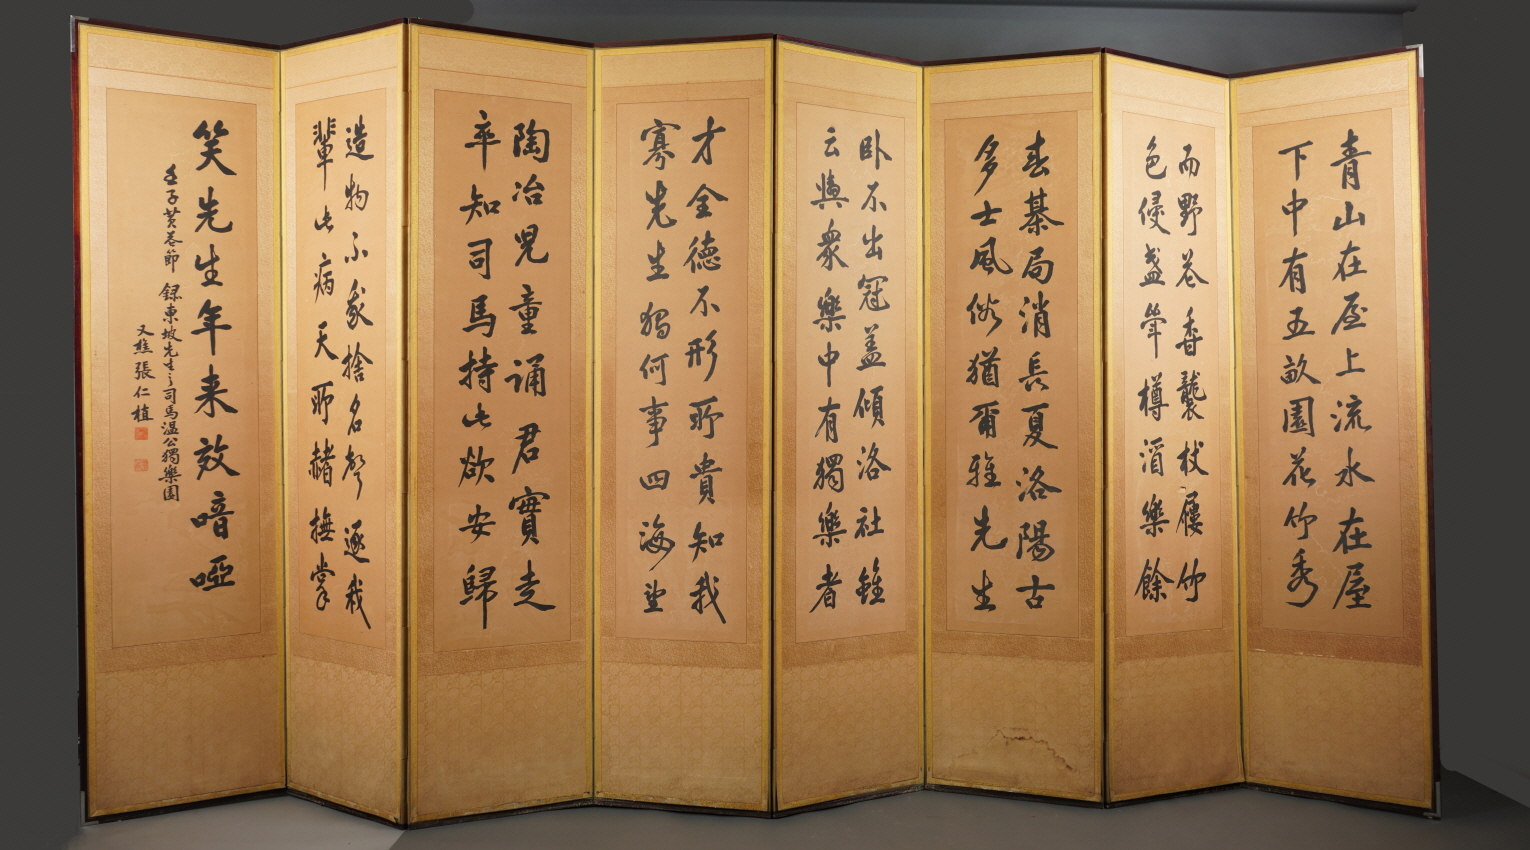 青山在屋上流水在屋
下中有五畝園花竹秀
而野花香襲杖屨竹
色侵盞斝樽酒樂餘
春棊局消長夏洛陽古
多士風俗猶爾雅先生
卧不出冠盖傾洛社雖
云與衆樂中有獨樂者
才全德不形所貴知我
寡先生獨何事四海望
陶冶児童誦君實走
卒知司馬持此欲安歸
造物不我捨名聲逐我
輩此病天所赭撫掌
笑先生年来效喑啞
壬子黄花節 録東坡先生之司馬温公獨樂園
又 張仁植